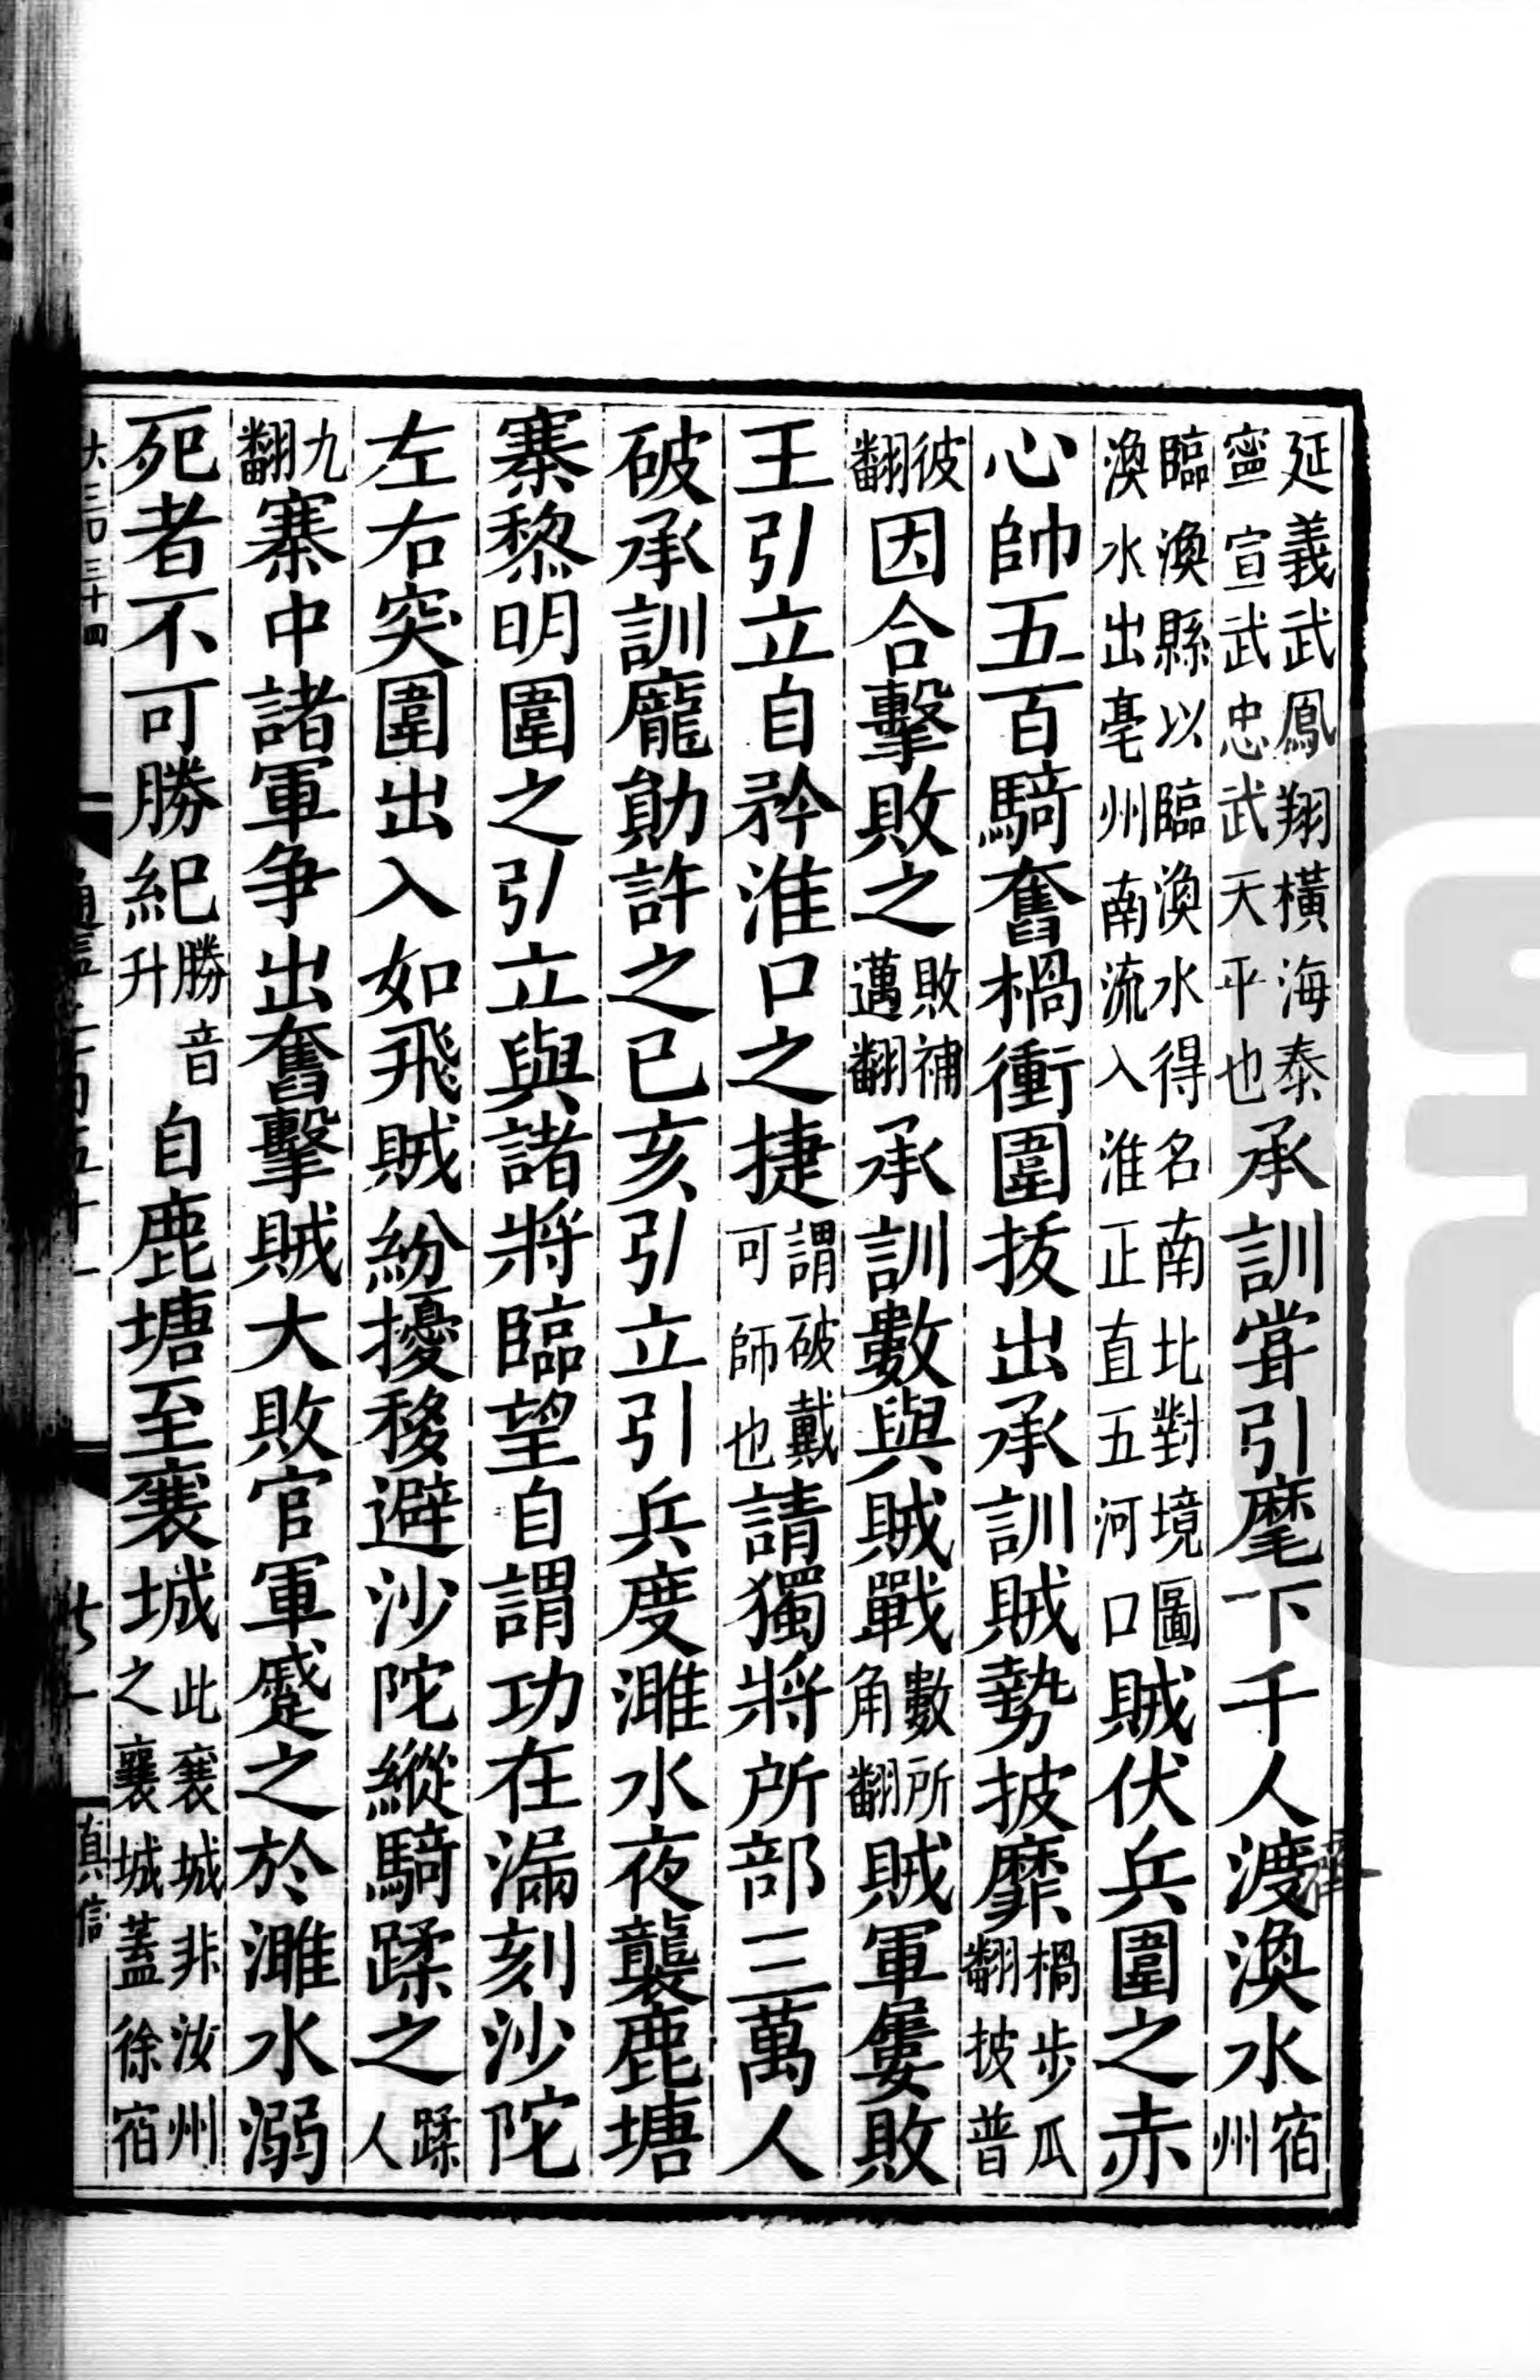 延義武鳳翔橫海泰寧宣武忠武天平也承訓嘗引麾下千人渡渙水宿州
臨渙縣以臨渙水得名南北對境圖渙水出亳州南流入淮正直五河口賊伏兵圍之赤
心帥五百騎奮檛衝圍拔出承訓賊勢披靡檛步瓜翻披普
彼翻因合擊敗之敗補邁翻承訓數與賊戰數所角翻賊軍屢敗
王引立自矜淮口之捷謂破戴可師也請獨將所部三萬人
破承訓龐勛許之己亥引立引兵度濉水夜襲鹿塘
寨黎明圍之引立與諸將臨望自謂功在漏刻沙陀
左右突圍出入如飛賊紛擾移避沙陀縱騎蹂之蹂人
九翻寨中諸軍争出奮擊賊大敗官軍蹙之於濉水溺
死者不可勝紀勝音升自鹿塘至襄城此襄城非汝州之襄城蓋徐宿